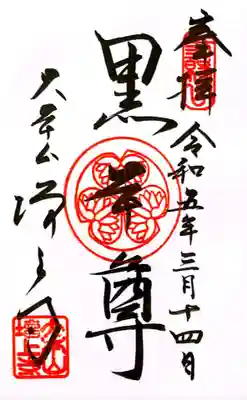 奉拝
令和五年三月十四日
黒本尊
大本山 増上寺